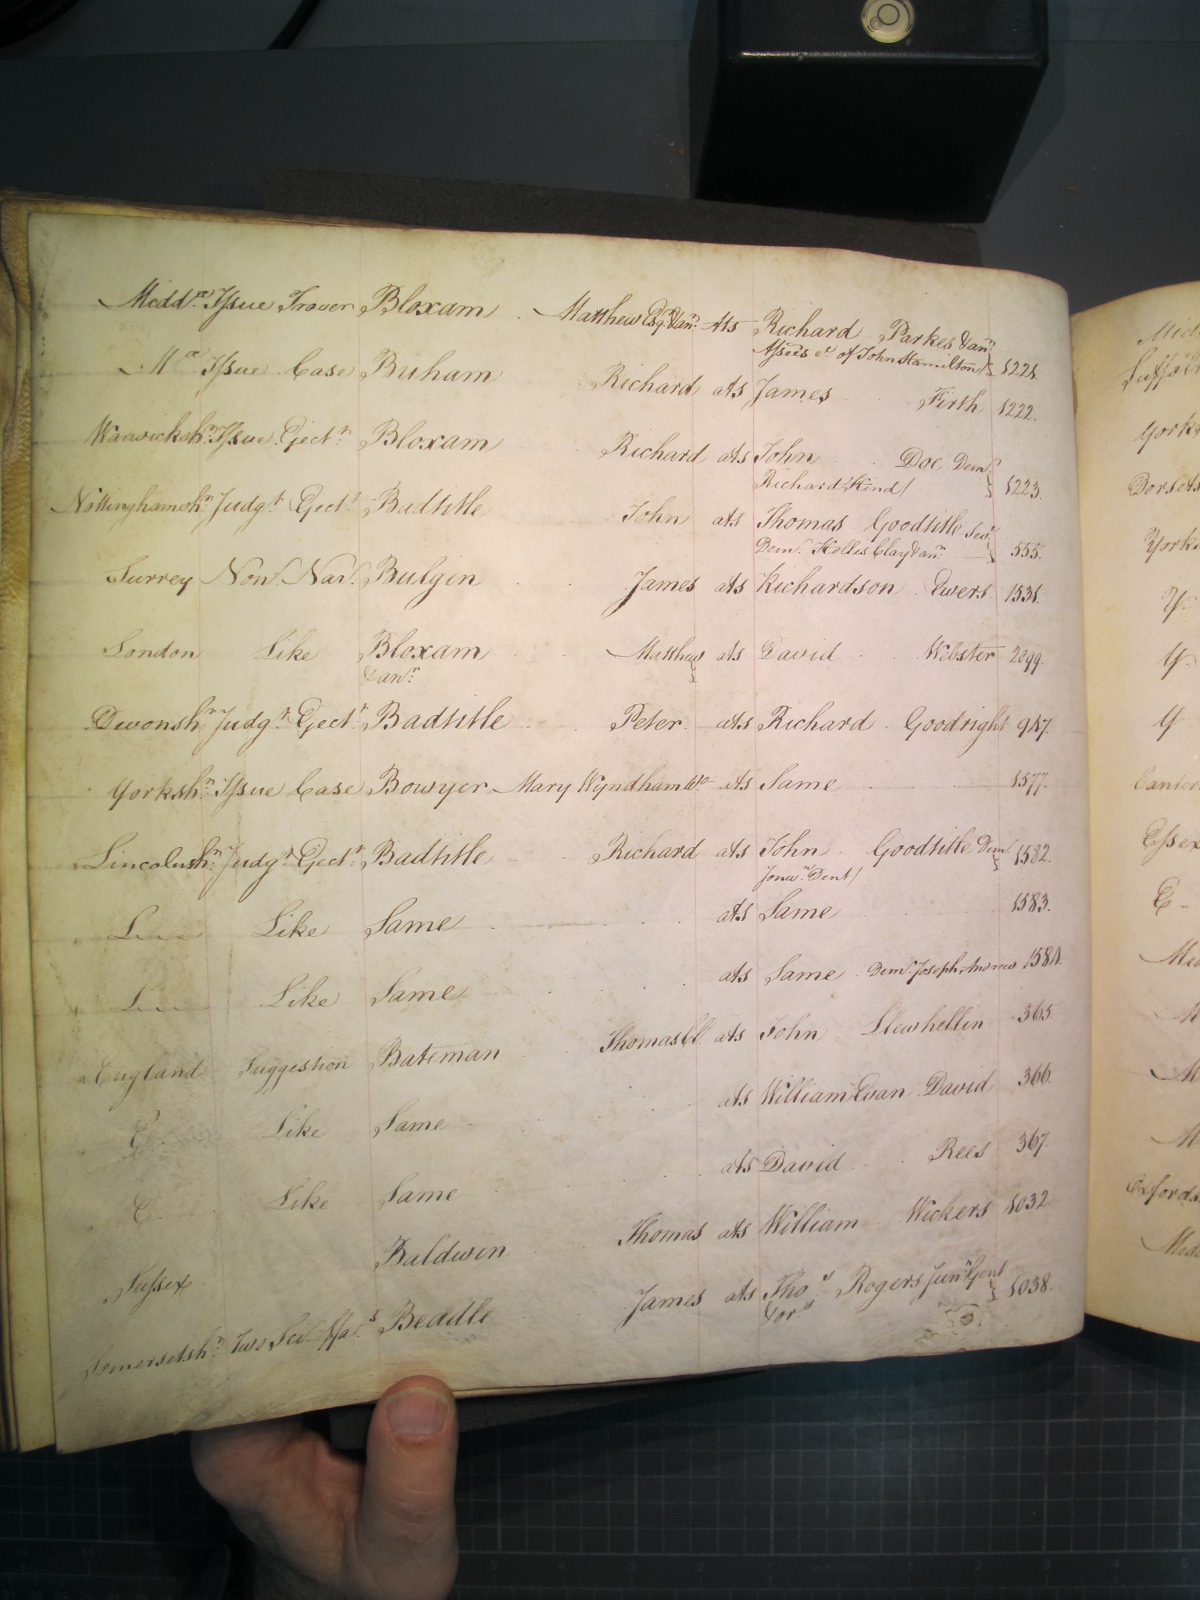 Middx Issue Trover Bloxam Matthew Esqr & anr. ats Richard Parkes & anr.
Assees &c of John Hamilton 1221.
Mx Issue Case Buham Richard ats James Firth 1222.
Warwicksh. Issue Eject. Bloxam Richard ats John Doe Dem.
Richard Kind 1223.
Nottinghamsh. Judgt. Eject. Badtitle John ats Thomas Goodtitle
Dem. Hollis Clay & anr. 555.
Surrey Non. Nar. Bulgin James ats Richardson Ewers 1531.
London Like Bloxam Matthew ats David Webster 2099.
& anr.
Devonsh. Judgt. Eject. Badtitle Peter ats Richard Goodright 947.
Yorksh. Issue Case Bowyer Mary Wyndham Wo ats Same 1577.
Lincolnsh. Judgt. Eject. Badtitle Richard ats John Goodtitle Dem.
Jonan. Dent 1582.
L Like Same ats Same 1583.
L Like Same ats Same Dem. Joseph Andrew 1584.
England Suggestion Bateman Thomas ats John Llewhellin 365
E. Like Same ats William Evan David 366.
E. Like Same ats David Rees 367.
Sussex Baldwin Thomas ats William Wickers 1032
Somersetsh. Two Sci. Beadle James ats Thos. Rogers Junr. Gent
& ors 1038.